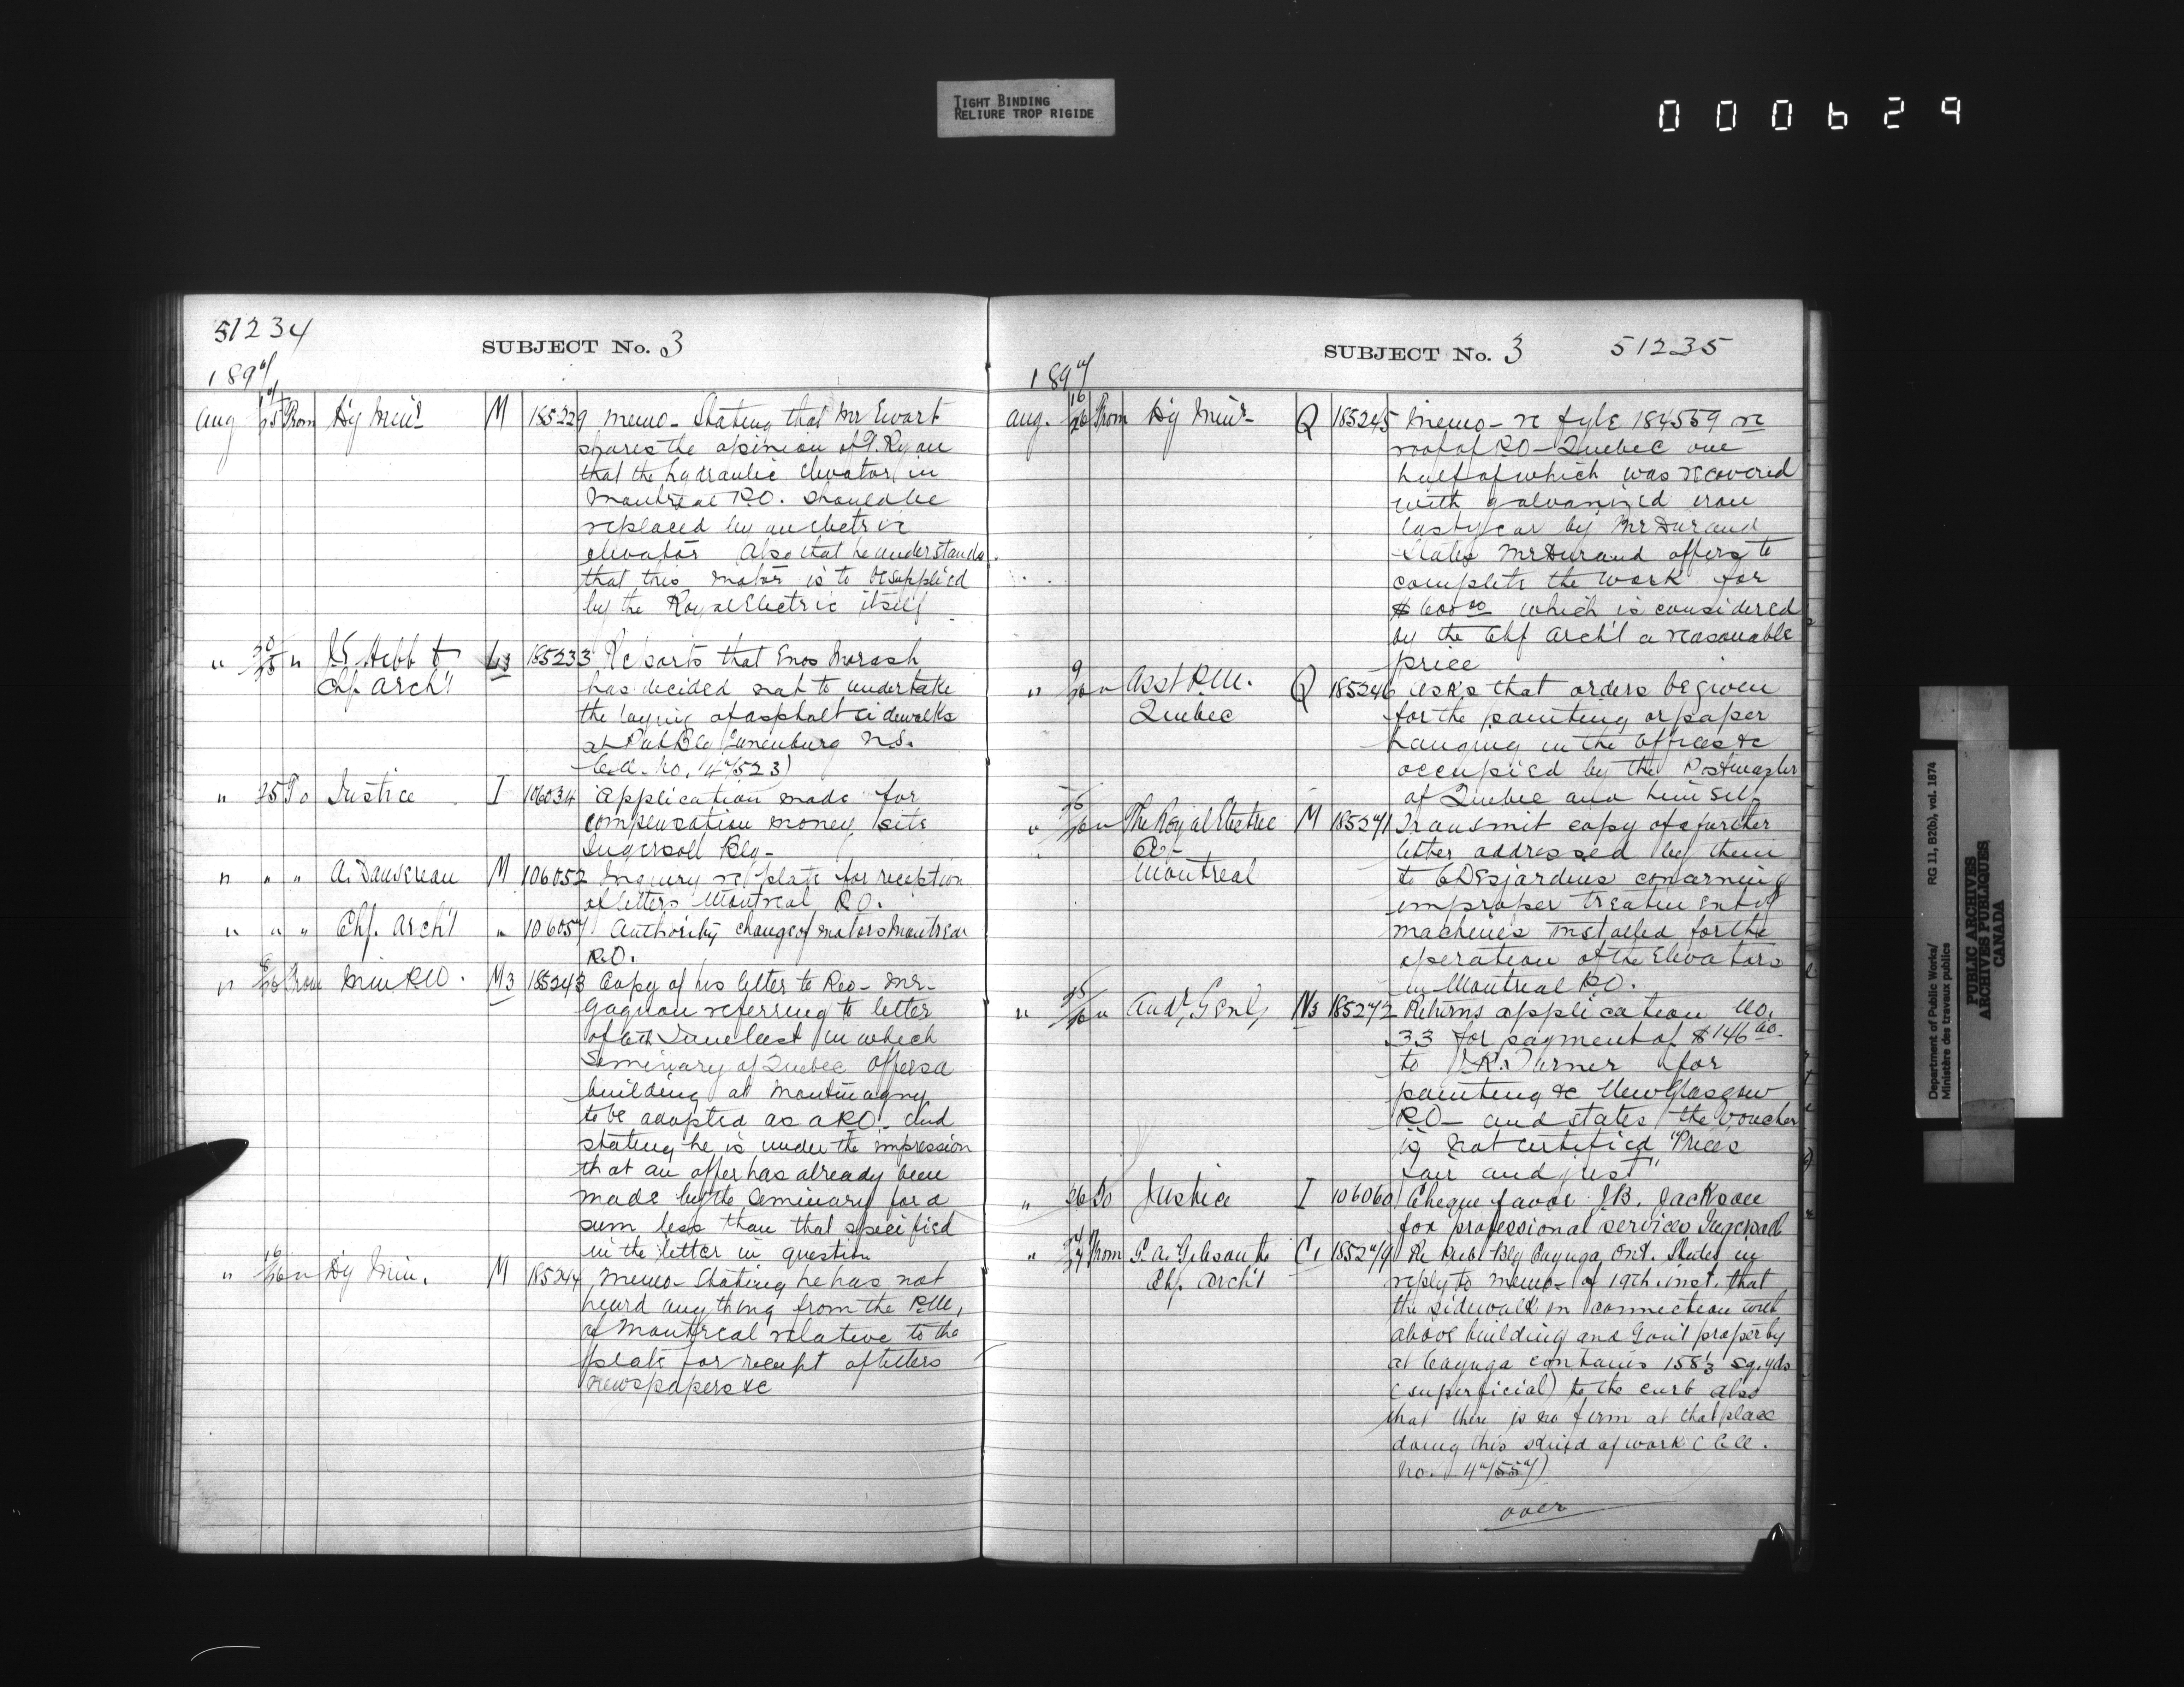 TIGHT BINDING
RELIURE TROP RIGIDE
000629
51234
SUBJECT No. 3
1897
Aug 25 From Dy Minr M 185229 Memo- Stating that Mr Ewart
shares the opinion of P. Ryan
that the hydraulic elevator in
Montreal P.O. should be
replaced by an electric
elevator Also that he understands
that this motor is to be supplied
by the Royal Electric itself
" 25 " Hebb to 185233 Reports that Enos Morash
Chf. Arch't has decided not to undertake
the laying of asphalt sidewalks
at Pub Blg Lunenburg N.S.
" 25 To Justice I 106034 Application made for
compensation money, site
Ingersoll Blg-
" " " A. Dansereau M 106052 Inquiry re plate for reception
of letters Montreal P.O.
" " " Chf. Arch't " 106057 Authority change of motors Montreal
P.O.
" From Min P.W. M3 185243 Copy of his letter to Rev- Mr-
Gagnon referring to letter
of 6th June last in which
Seminary of Quebec offers a
building at Montmagny
to be adapted as a P.O. and
stating he is under the impression
that an offer has already been
made by the Seminary for a
sum less than that specified
in the letter in question
" 16/26 " Dy Min. M 185244 Memo- Stating he has not
heard anything from the P.M.,
of Montreal relative to the
plate for receipt of letters
newspapers &c
SUBJECT No. 3 51235
1897
Aug. 16/26 From Dy Minr- Q 185245 Memo- re fyle 184559 re
roof of P.O- Quebec one
half of which was recovered
with galvanized iron
last year by Mr Durand
States Mr Durand offers to
complete the work for
$600 00 which is considered
by the Chf Arch't a reasonable
price
" 9/26 " Asst P.M. Q 185246 Asks that orders be given
Quebec for the painting or paper
hanging in the offices &c
occupied by the Postmaster
of Quebec and himself
" " The Royal Electric M 185271 Transmit copy of a further
Co- letter addressed by them
Montreal to Desjardins concerning
improper treatment of
machines installed for the
operation of the Elevators
in Montreal P.O.
" 25/26 " Audr Genl, N3 185272 Returns application No.
33 for payment of $146
to Turner for
painting &c New Glasgow
P.O- and states the voucher
is not certified "Prices
fair and just"
" 26 To Justice I 106060 Cheque favor J.B. Jackson
for professional services Ingersoll
" From G. A. Gibson to C1 185279 Re Pub- Blg Cayuga Ont. States in
Chf. Arch't reply to memo- of 19th inst. that
the sidewalk in connection with
above building and Gov't property
at Cayuga contains 158 1/3 sq. yds
(superficial) to the curb also
that there is no firm at that place
doing this kind of work (C.A.
No.
over
Department of Public Works/
Ministère des travaux publics
RG 11, B2(b), vol. 1874
PUBLIC ARCHIVES
ARCHIVES PUBLIQUES
CANADA